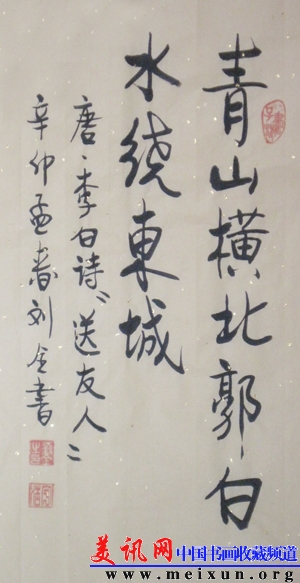 青山横北郭白
水绕東城
唐、李白诗〝送友人〞
辛卯孟春刘金書
美讯网 中国书画收藏频道
www.meixun.org